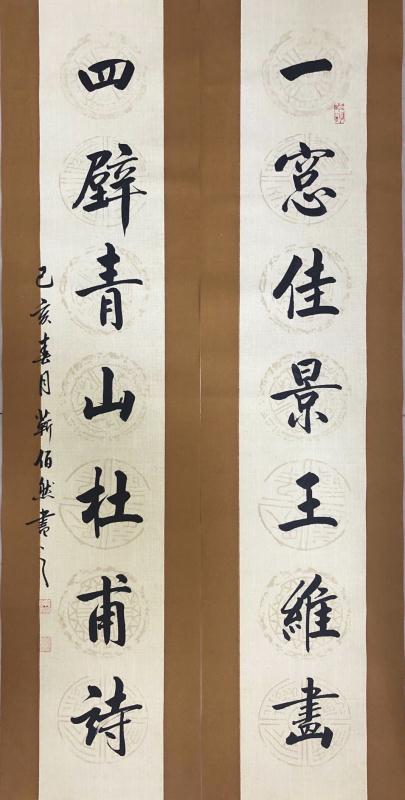 一窓佳景王維畫
四壁青山杜甫詩
己亥春月蕲伯然書之